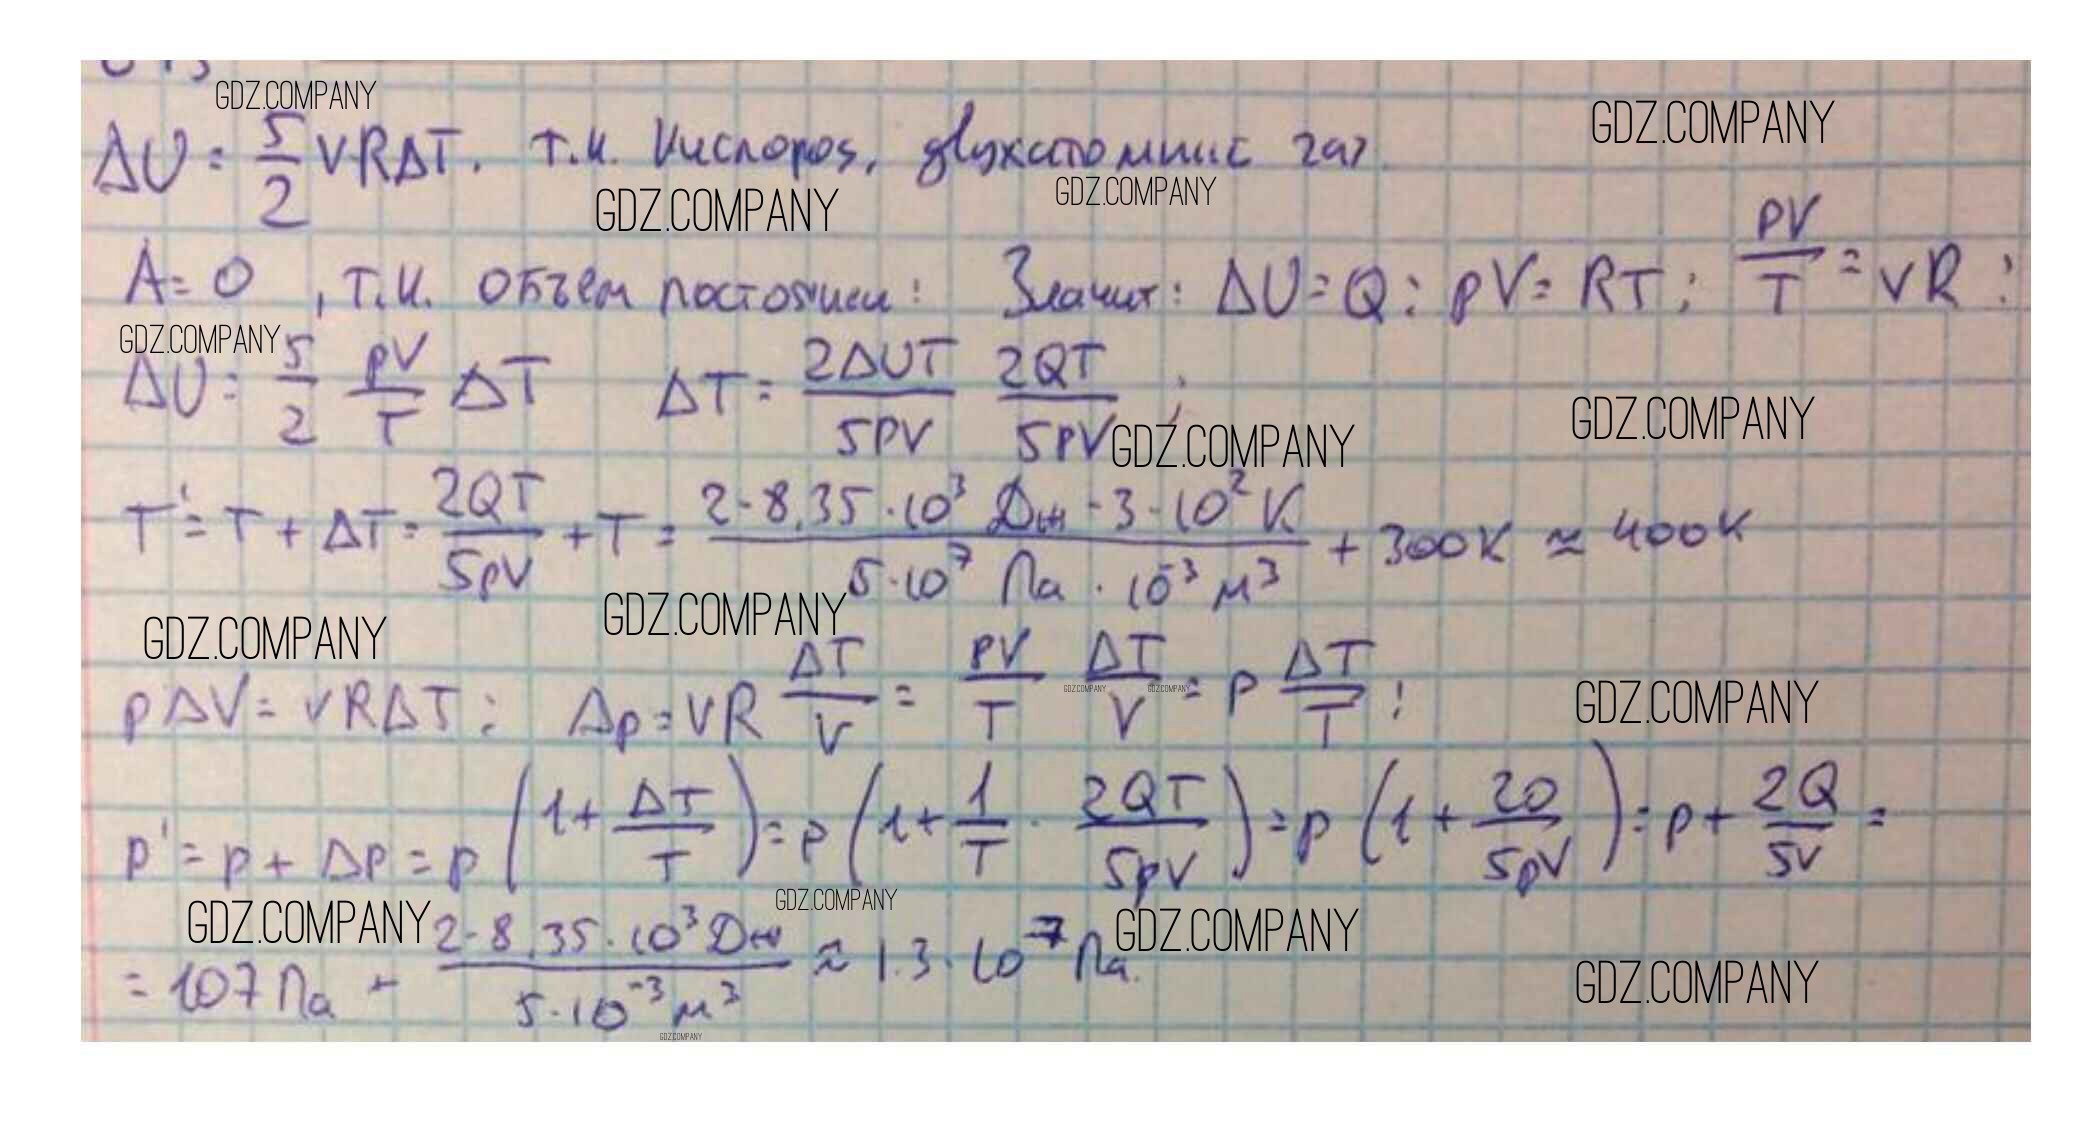 GDZ.COMPANY GDZ.COMPANY
ΔU = 5/2 νRΔT. т.к. Кислород, двухатомный газ.
GDZ.COMPANY GDZ.COMPANY
A = 0, т.к. объём постоянен: Значит: ΔU = Q: pV = RT; pV/T = νR;
GDZ.COMPANY
ΔU = 5/2 pV/T ΔT ΔT = 2ΔUT/5pV 2QT/5pV;
GDZ.COMPANY GDZ.COMPANY
T' = T + ΔT = 2QT/5pV + T = 2·8,35·10³ Дж·3·10² К / 5·10⁷ Па·10⁻³ м³ + 300К ≈ 400К
GDZ.COMPANY GDZ.COMPANY
pΔV = νRΔT; Δp = νR ΔT/V = pV/T ΔT/V = p ΔT/T;
GDZ.COMPANY GDZ.COMPANY GDZ.COMPANY
p' = p + Δp = p(1 + ΔT/T) = p(1 + 1/T · 2QT/5pV) = p(1 + 2Q/5pV) = p + 2Q/5V =
GDZ.COMPANY GDZ.COMPANY GDZ.COMPANY
= 107 Па + 2·8,35·10³ Дж / 5·10⁻³ м³ ≈ 1.3·10⁻⁷ Па.
GDZ.COMPANY
GDZ.COMPANY